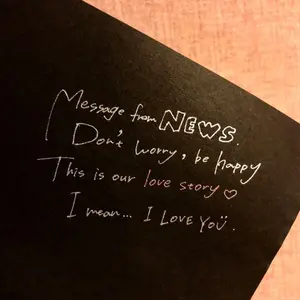 Message from NEWS.
Don't worry, be happy
This is our love story♡
I mean... I LOVE YOU.